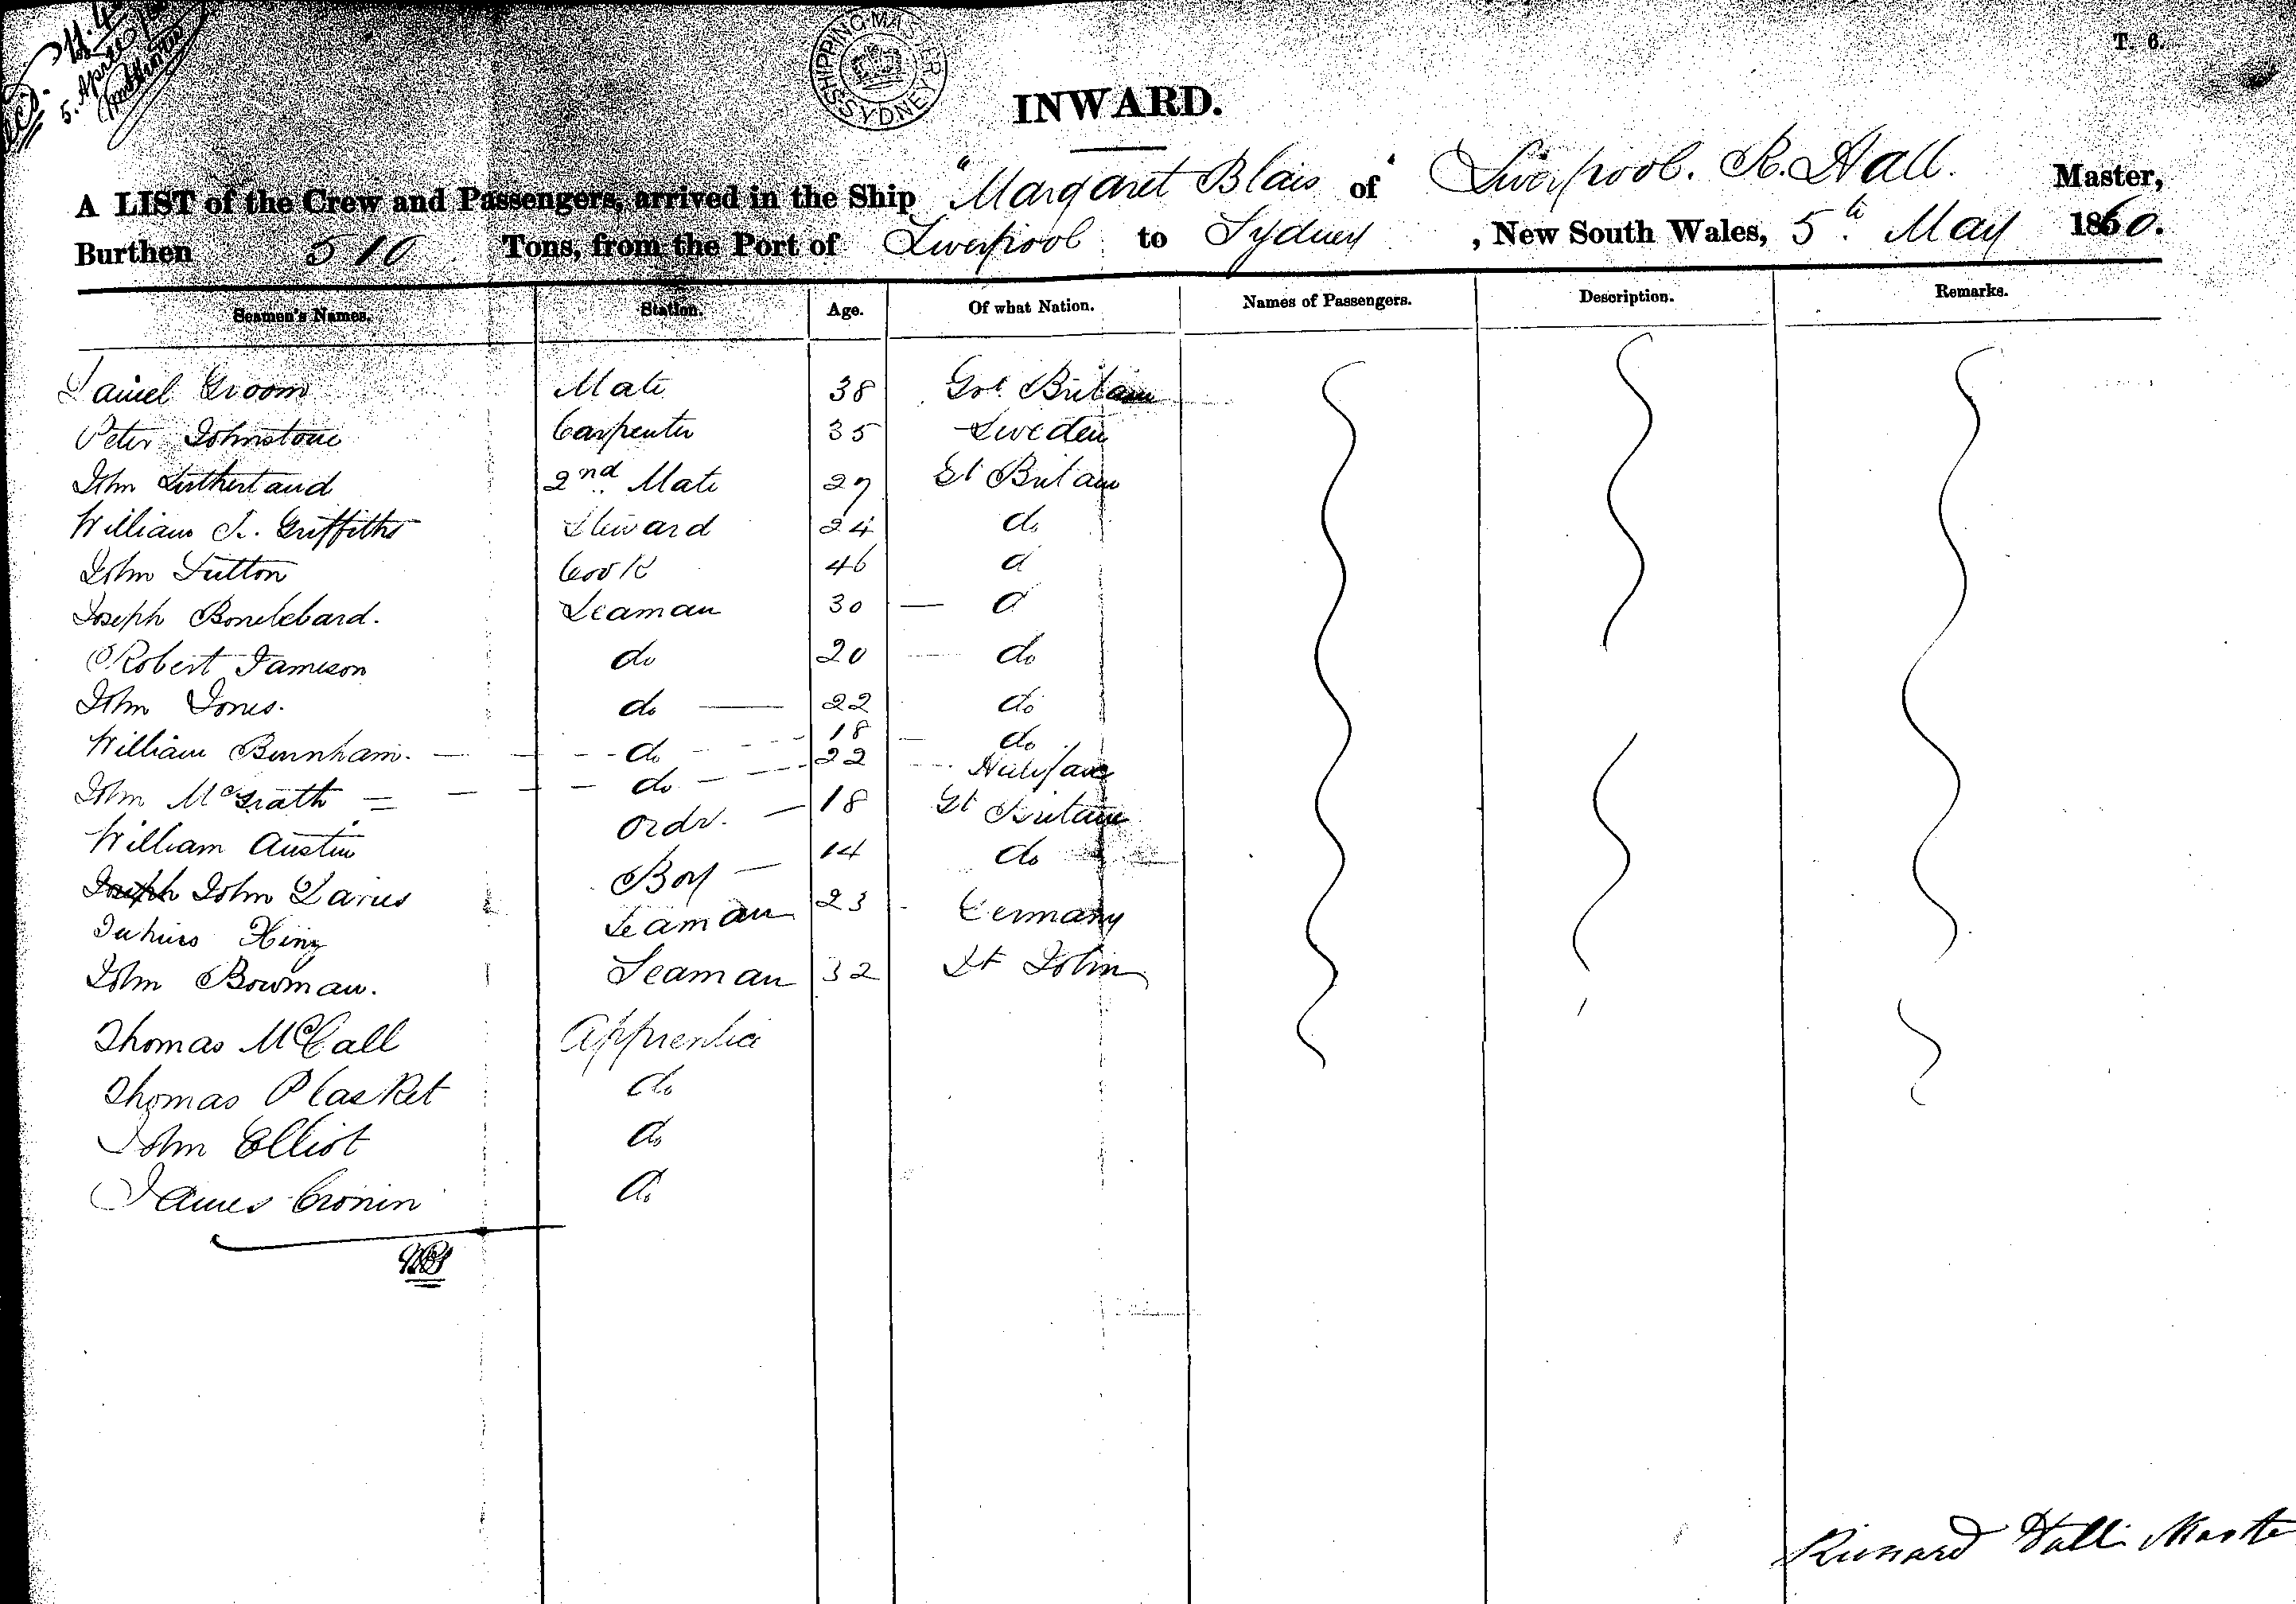 T. 6.
SHIPPING MASTER SYDNEY
5. April
INWARD.
A LIST of the Crew and Passengers, arrived in the Ship "Margaret Blais" of Liverpool. R. Hall. Master,
Burthen 510 Tons, from the Port of Liverpool to Sydney, New South Wales, 5th May 1860.
Seamen's Names. Station. Age. Of what Nation. Names of Passengers. Description. Remarks.
Daniel Groom Mate 38 Grt Britain
Peter Johnstone Carpenter 35 Sweden
John Sutherland 2nd Mate 27 Gt Britain
William J. Griffiths Steward 24 do
John Sutton Cook 46 d
Joseph 30 Seaman — d
Robert Jameson do 20 do
John Jones. do — 22 do
William Burnham. do 18 do
John McGrath do 22 Halifax
William Austin Ordr. 18 Gt Britain
Joseph John Davies Boy 14 do
King Seaman 23 Germany
John Bowman. Seaman 32 St John
Thomas McCall Apprentice
Thomas Plasket do
John Elliot do
James Cronin do
Richard Hall Master